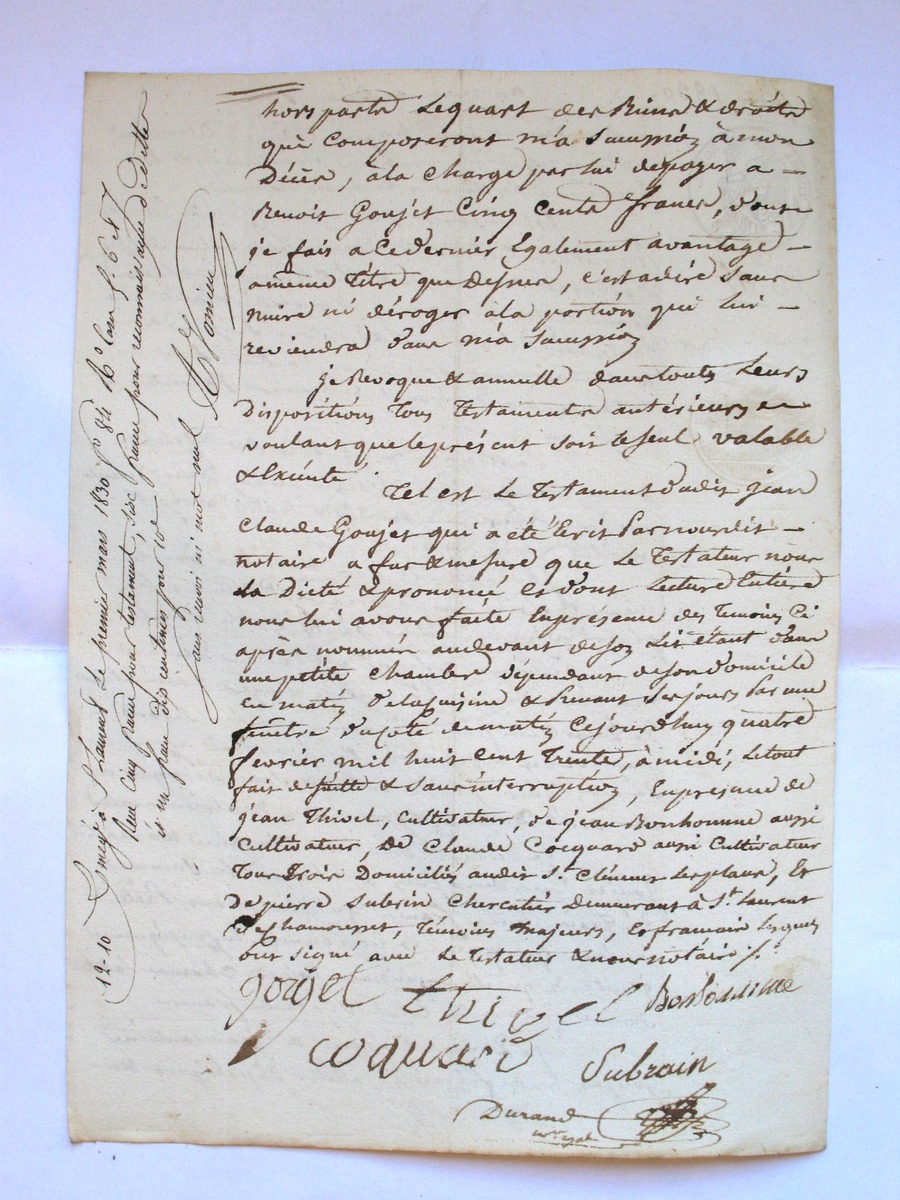 hors parts Le quart des Biens & droits
qui Composeront ma Succession à mon
Décès, à la Charge par lui de payer a —
Benoit Goujet Cinq Cents francs, dont
je fais a Ce dernier Egalement avantage —
a même titre que Dessus, c'est adire Sans
nuire ni déroger à la portion qui lui —
reviendra dans ma Succession
je Revoque & annulle dans toutes Leurs
Dispositions Tous Testaments antérieurs
voulant que le présent soit le seul valable
& Exécuté.
Tel est Le Testament dudit jean
Claude Goujet qui a été Ecrit Par nous dit —
notaire a fur & mesure que Le Testateur nous
La Dicté & prononcé Et dont Lecture Entière
nous lui avons faite En présence des Temoins Ci
après nommés audevant de son Lit étant dans
une petite Chambre dépendant de son domicile
en matin de la cuisine & Prenant Ses jours Par une
fenêtre du coté de matin Cejourdhuy quatre
fevrier mil huit Cent Trente, à midi, Letout
fait de suitte & Sans interruption, En présence de
jean Thivel, Cultivateur, de jean Bonhomme aussi
Cultivateur, De Claude Coquard aussi Cultivateur
Tous Trois Domiciliés audit St. Clément Les places, Et
De pierre Subrin Charpentier Demeurant à St. Laurent
De Chamousset, Témoins Majeurs, Et français Lesquels
Ont Signé avec Le Testateur & nous notaire /.
gorjet thivel Bonhomme
coquard
Subrain
Durand
nre royal
12-10 Enregé à St Laurent Le premier mars 1830 fo 84 Ro Case 6 & 7
Reçu Cinq francs pour testament, pour reconnaissance de dette
et un franc dix centimes pour 10e
Sans renvoi ni mot nul